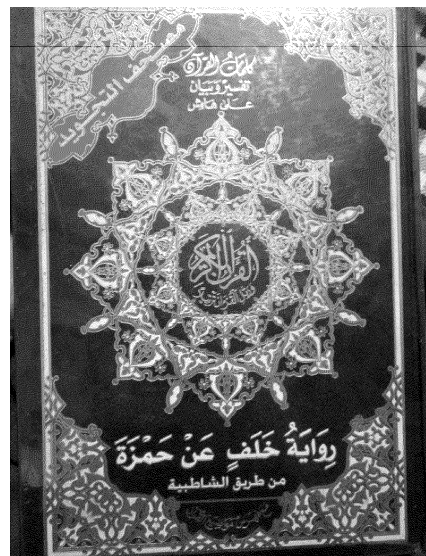 مصحف التجويد
كلمات القرآن
تفسير وبيان
على هامش
القرآن الكريم
ورتل القرآن ترتيلا
رِوَايَةُ خَلَفٍ عَنْ حَمْزَةَ
من طريق الشاطبية